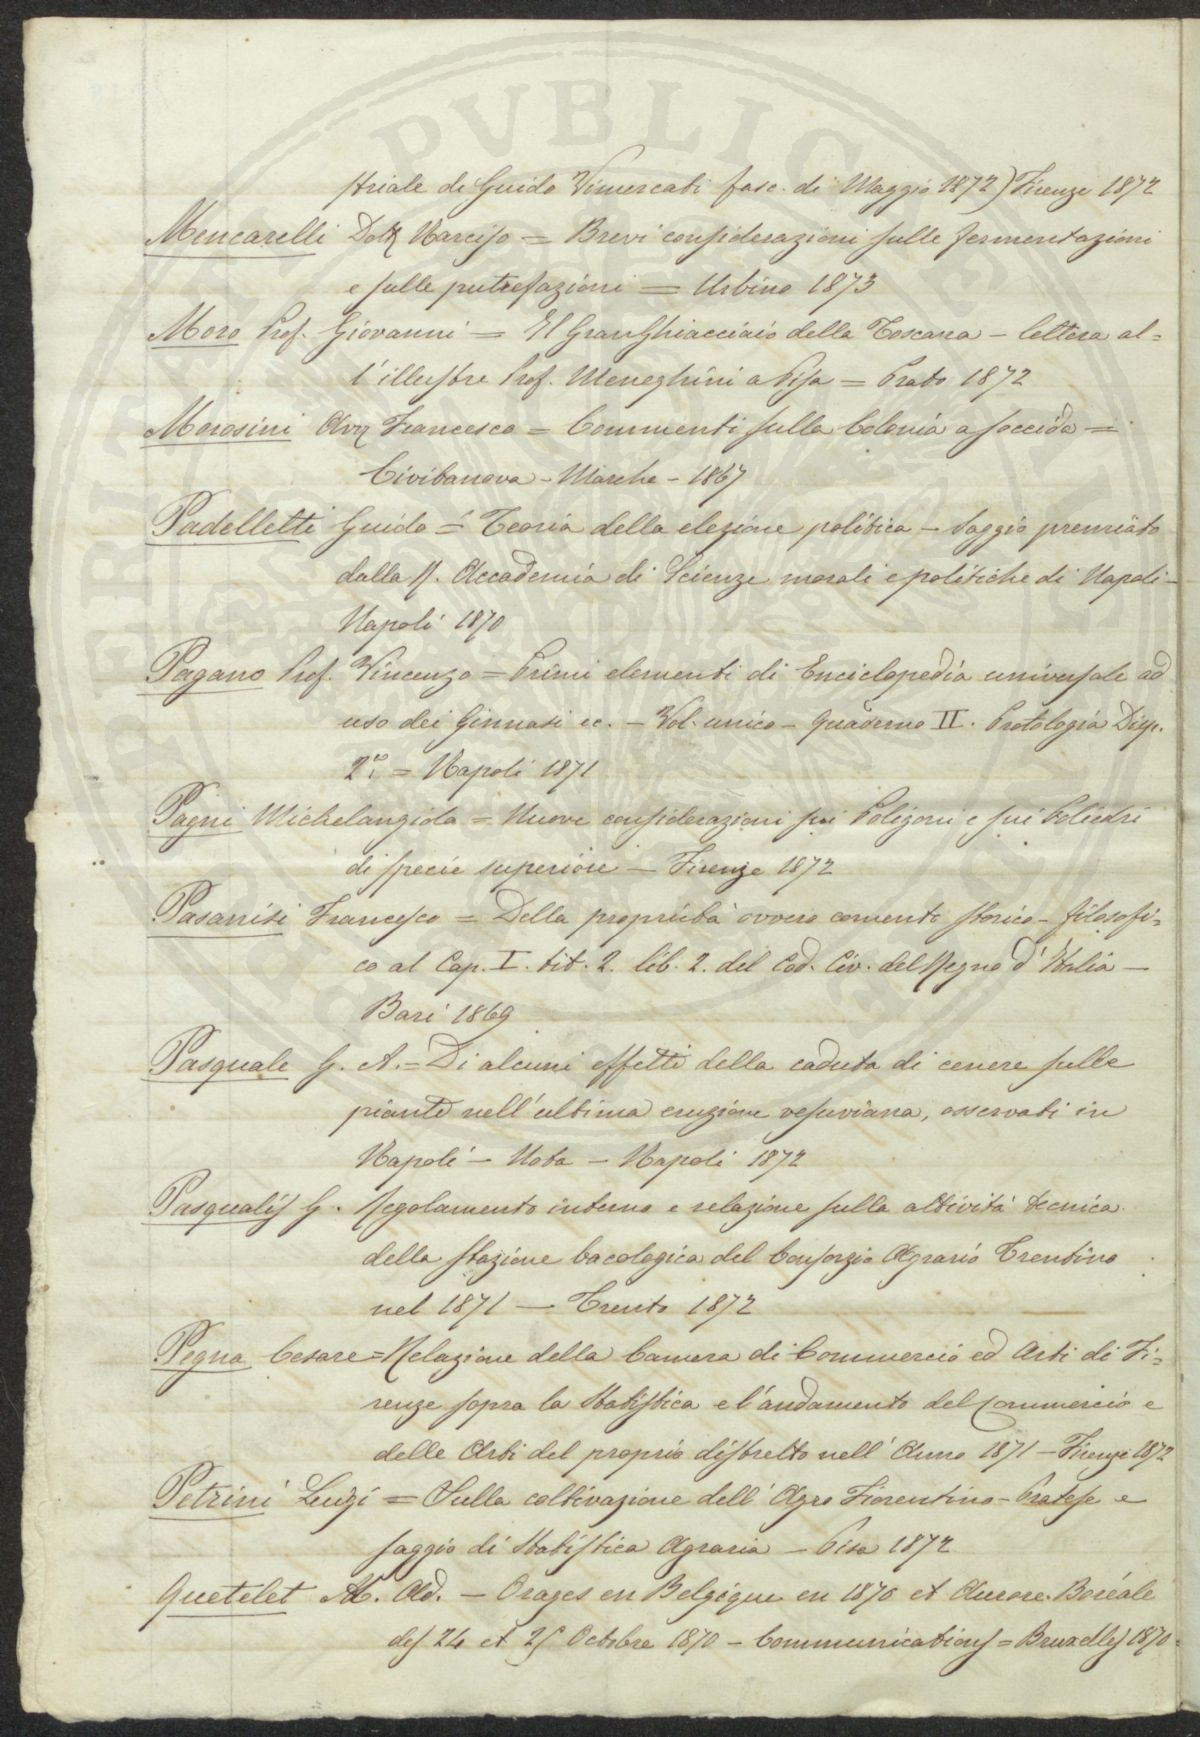 striale di Guido Vimercati fasc. di Maggio 1872) Firenze 1872
Mencarelli Dott Narciso = Brevi considerazioni sulle fermentazioni
e sulle putrefazioni = Urbino 1873
Moro Prof. Giovanni = Il Gran Ghiacciaio della Toscana - lettera al=
l'illustre Prof. Meneghini a Pisa = Prato 1872
Morosini Avv Francesco = Commenti sulla Colonia a soccida =
Civitanova - Marche - 1867
Padelletti Guido = Teoria della elezione politica - Saggio premiato
dalla R. Accademia di Scienze morali e politiche di Napoli -
Napoli 1870
Pagano Prof. Vincenzo = Primi elementi di Enciclopedia universale ad
uso dei Ginnasi ec. - Vol. unico - Quaderno II. Protologia Disp.
2a. = Napoli 1871
Pagni Michelangiolo = Nuove considerazioni sui Poligoni e sui Poliedri
di specie superiore - Firenze 1872
Pasanisi Francesco = Della proprietà ovvero comento storico - filosofi=
co al Cap. I. tit. 2. lib. 2. del Cod. Civ. del Regno d'Italia -
Bari 1869
Pasquale G. A. = Di alcuni effetti della caduta di cenere sulle
piante nell'ultima eruzione vesuviana, osservati in
Napoli - Nota - Napoli 1872
Pasqualis G. Regolamento interno e relazione sulla attività tecnica
della stazione bacologica del Consorzio Agrario Trentino
nel 1871 - Trento 1872
Pegna Cesare = Relazione della Camera di Commercio ed Arti di Fi=
renze sopra la Statistica e l'andamento del Commercio e
delle Arti del proprio distretto nell'Anno 1871 - Firenze 1872
Petrini Luigi = Sulla coltivazione dell'Agro Fiorentino - Pratese e
saggio di Statistica Agraria - Pisa 1872
Quetelet M. Ad. - Orages en Belgique en 1870 et Aurore Boréale
des 24 et 25 Octobre 1870 - Communications = Bruxelles 1870.